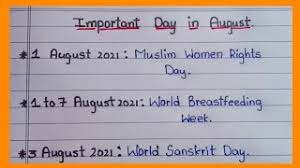 Important Day in August.
* 1 August 2021: Muslim Women Rights
Day.
* 1 to 7 August 2021: World Breastfeeding
Week.
* 3 August 2021: World Sanskrit Day.